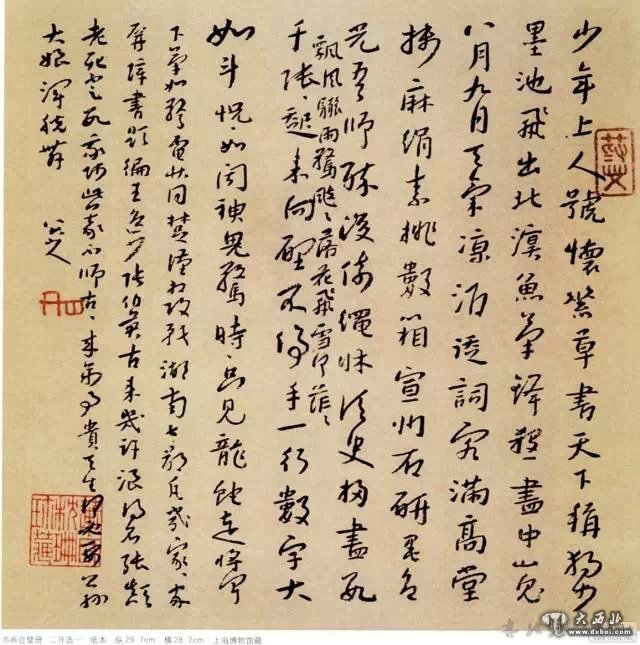 少年上人號懷素草書天下稱獨步
墨池飛出北溟魚筆鋒殺盡中山兔
八月九月天氣凉酒徒詞客滿高堂
牋麻絹素排數箱宣州石硯墨色
光吾師醉後倚繩床須臾掃盡數
飄風驟雨驚颯〻落花飛雪何茫〻
千張〻起來向壁不停手一行數字大
如斗怳〻如聞神鬼驚時〻只見龍蛇走
下筆如驚電狀同楚漢相攻戰湖南七郡凡幾家〻家
屏障書題徧王逸少張伯英古來幾許浪得名張顛
老死不足數我師此義不師古〻來萬事貴天生何必要公孫
大娘渾脫舞
八大山人
书画合璧册 二开选一 纸本 纵29.7cm 横28.2cm 上海博物馆藏
大西北
www.dxbei.com